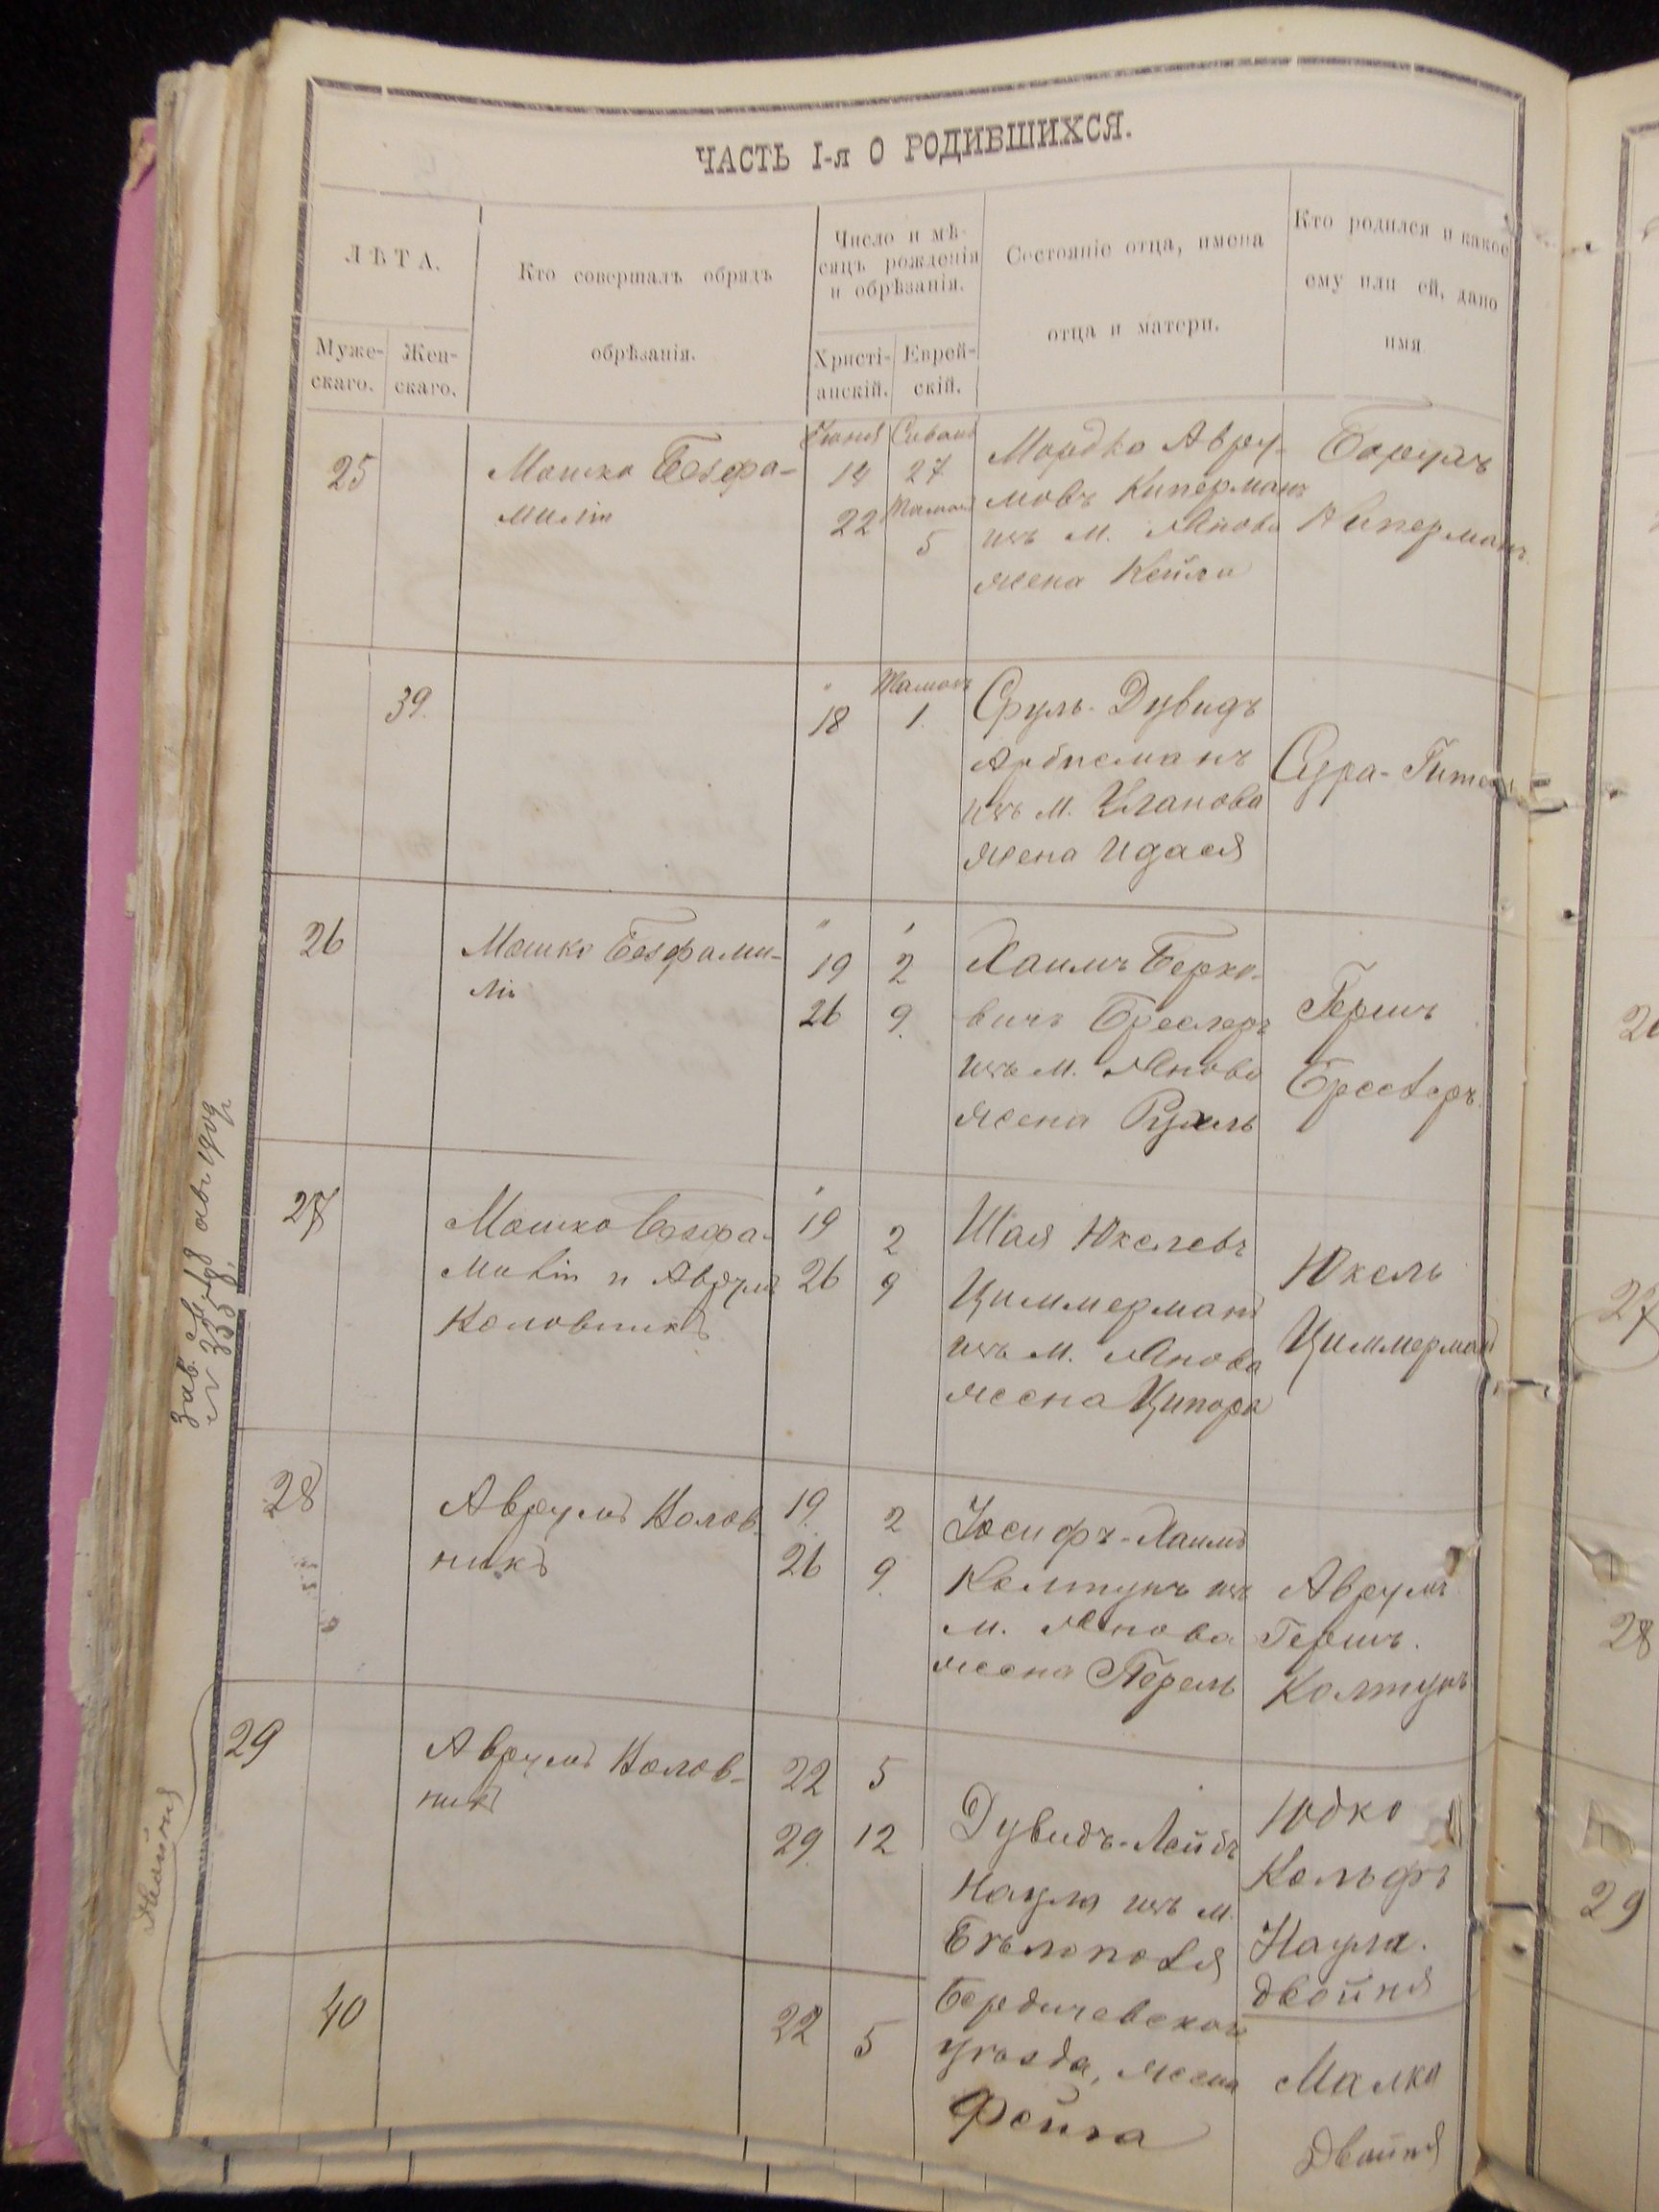 ЧАСТЬ I-я О РОДИВШИХСЯ.
ЛѢТА.
Муже-
скаго.
Жен-
скаго.
Кто совершалъ обрядъ
обрѣзанія.
Число и мѣ-
сяцъ рожденія
и обрѣзанія.
Христі-
анскій.
Еврей-
скій.
Состояніе отца, имена
отца и матери.
Кто родился и какое
ему или ей, дано
имя
25
Мошко Безфа-
милій
Іюня
14
22
Сивана
27
5
Мордко Авру-
мовъ Киперманъ
изъ м. Янова
жена Кейла
Борухъ
Киперманъ.
39.
"
18
1.
Сруль-Дувидъ
изъ м. Уланова
жена Идася
Сура-Гитель
26
Мошко Безфами-
лій
"
19
26
2
9.
Хаимъ Берко-
вичъ Бреслеръ
изъ м. Янова
жена Рухль
Гершъ
Бреслеръ.
27
Мошко Безфа-
милій и Аврумъ
Коловникъ
19
26
2
9
Шая Юкелевъ
Циммерманъ
изъ м. Янова
жена Ципора
Юкель
Циммерманъ
28
Аврумъ Колов-
никъ
19.
26
2
9.
Іосифъ-Хаимъ
Колтунъ изъ
м. Янова
жена Перель
Аврумъ
Гершъ.
Колтунъ
29
Аврумъ Колов-
никъ
22
29.
5
12
Дувидъ-Лейбъ
изъ м.
Бѣлополя
Бердичевскаго
уѣзда, жена
Фейга
Юдко
двойня
40
22
5
Малка
двойня
двойня
26
27
28
29